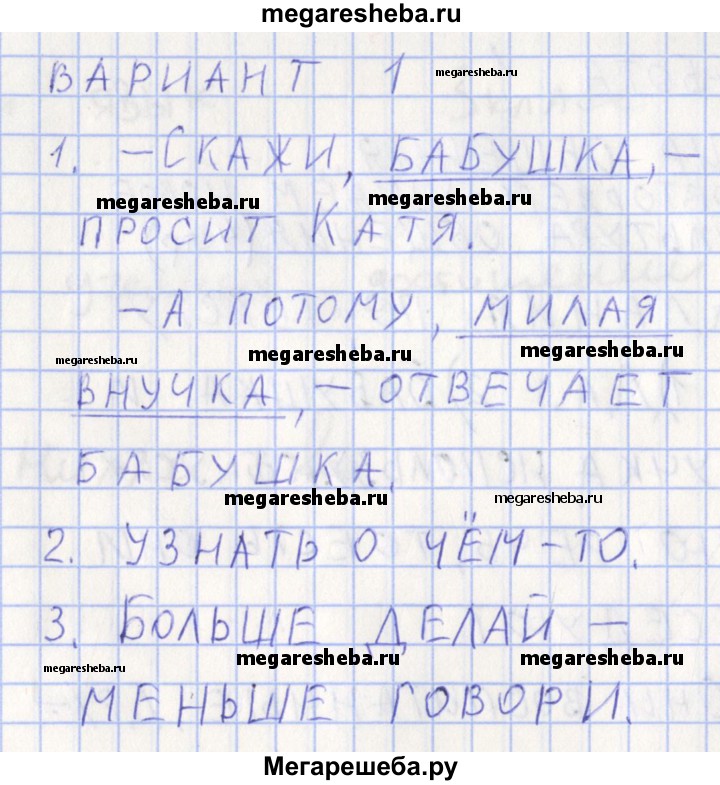 megaresheba.ru
ВАРИАНТ 1
megaresheba.ru
1. –СКАЖИ, БАБУШКА, –
megaresheba.ru megaresheba.ru
ПРОСИТ КАТЯ.
–А ПОТОМУ, МИЛАЯ
megaresheba.ru megaresheba.ru megaresheba.ru
ВНУЧКА, – ОТВЕЧАЕТ
БАБУШКА.
megaresheba.ru megaresheba.ru
2. УЗНАТЬ О ЧЁМ-ТО.
3. БОЛЬШЕ ДЕЛАЙ –
megaresheba.ru megaresheba.ru megaresheba.ru
МЕНЬШЕ ГОВОРИ.
Мегарешеба.ру